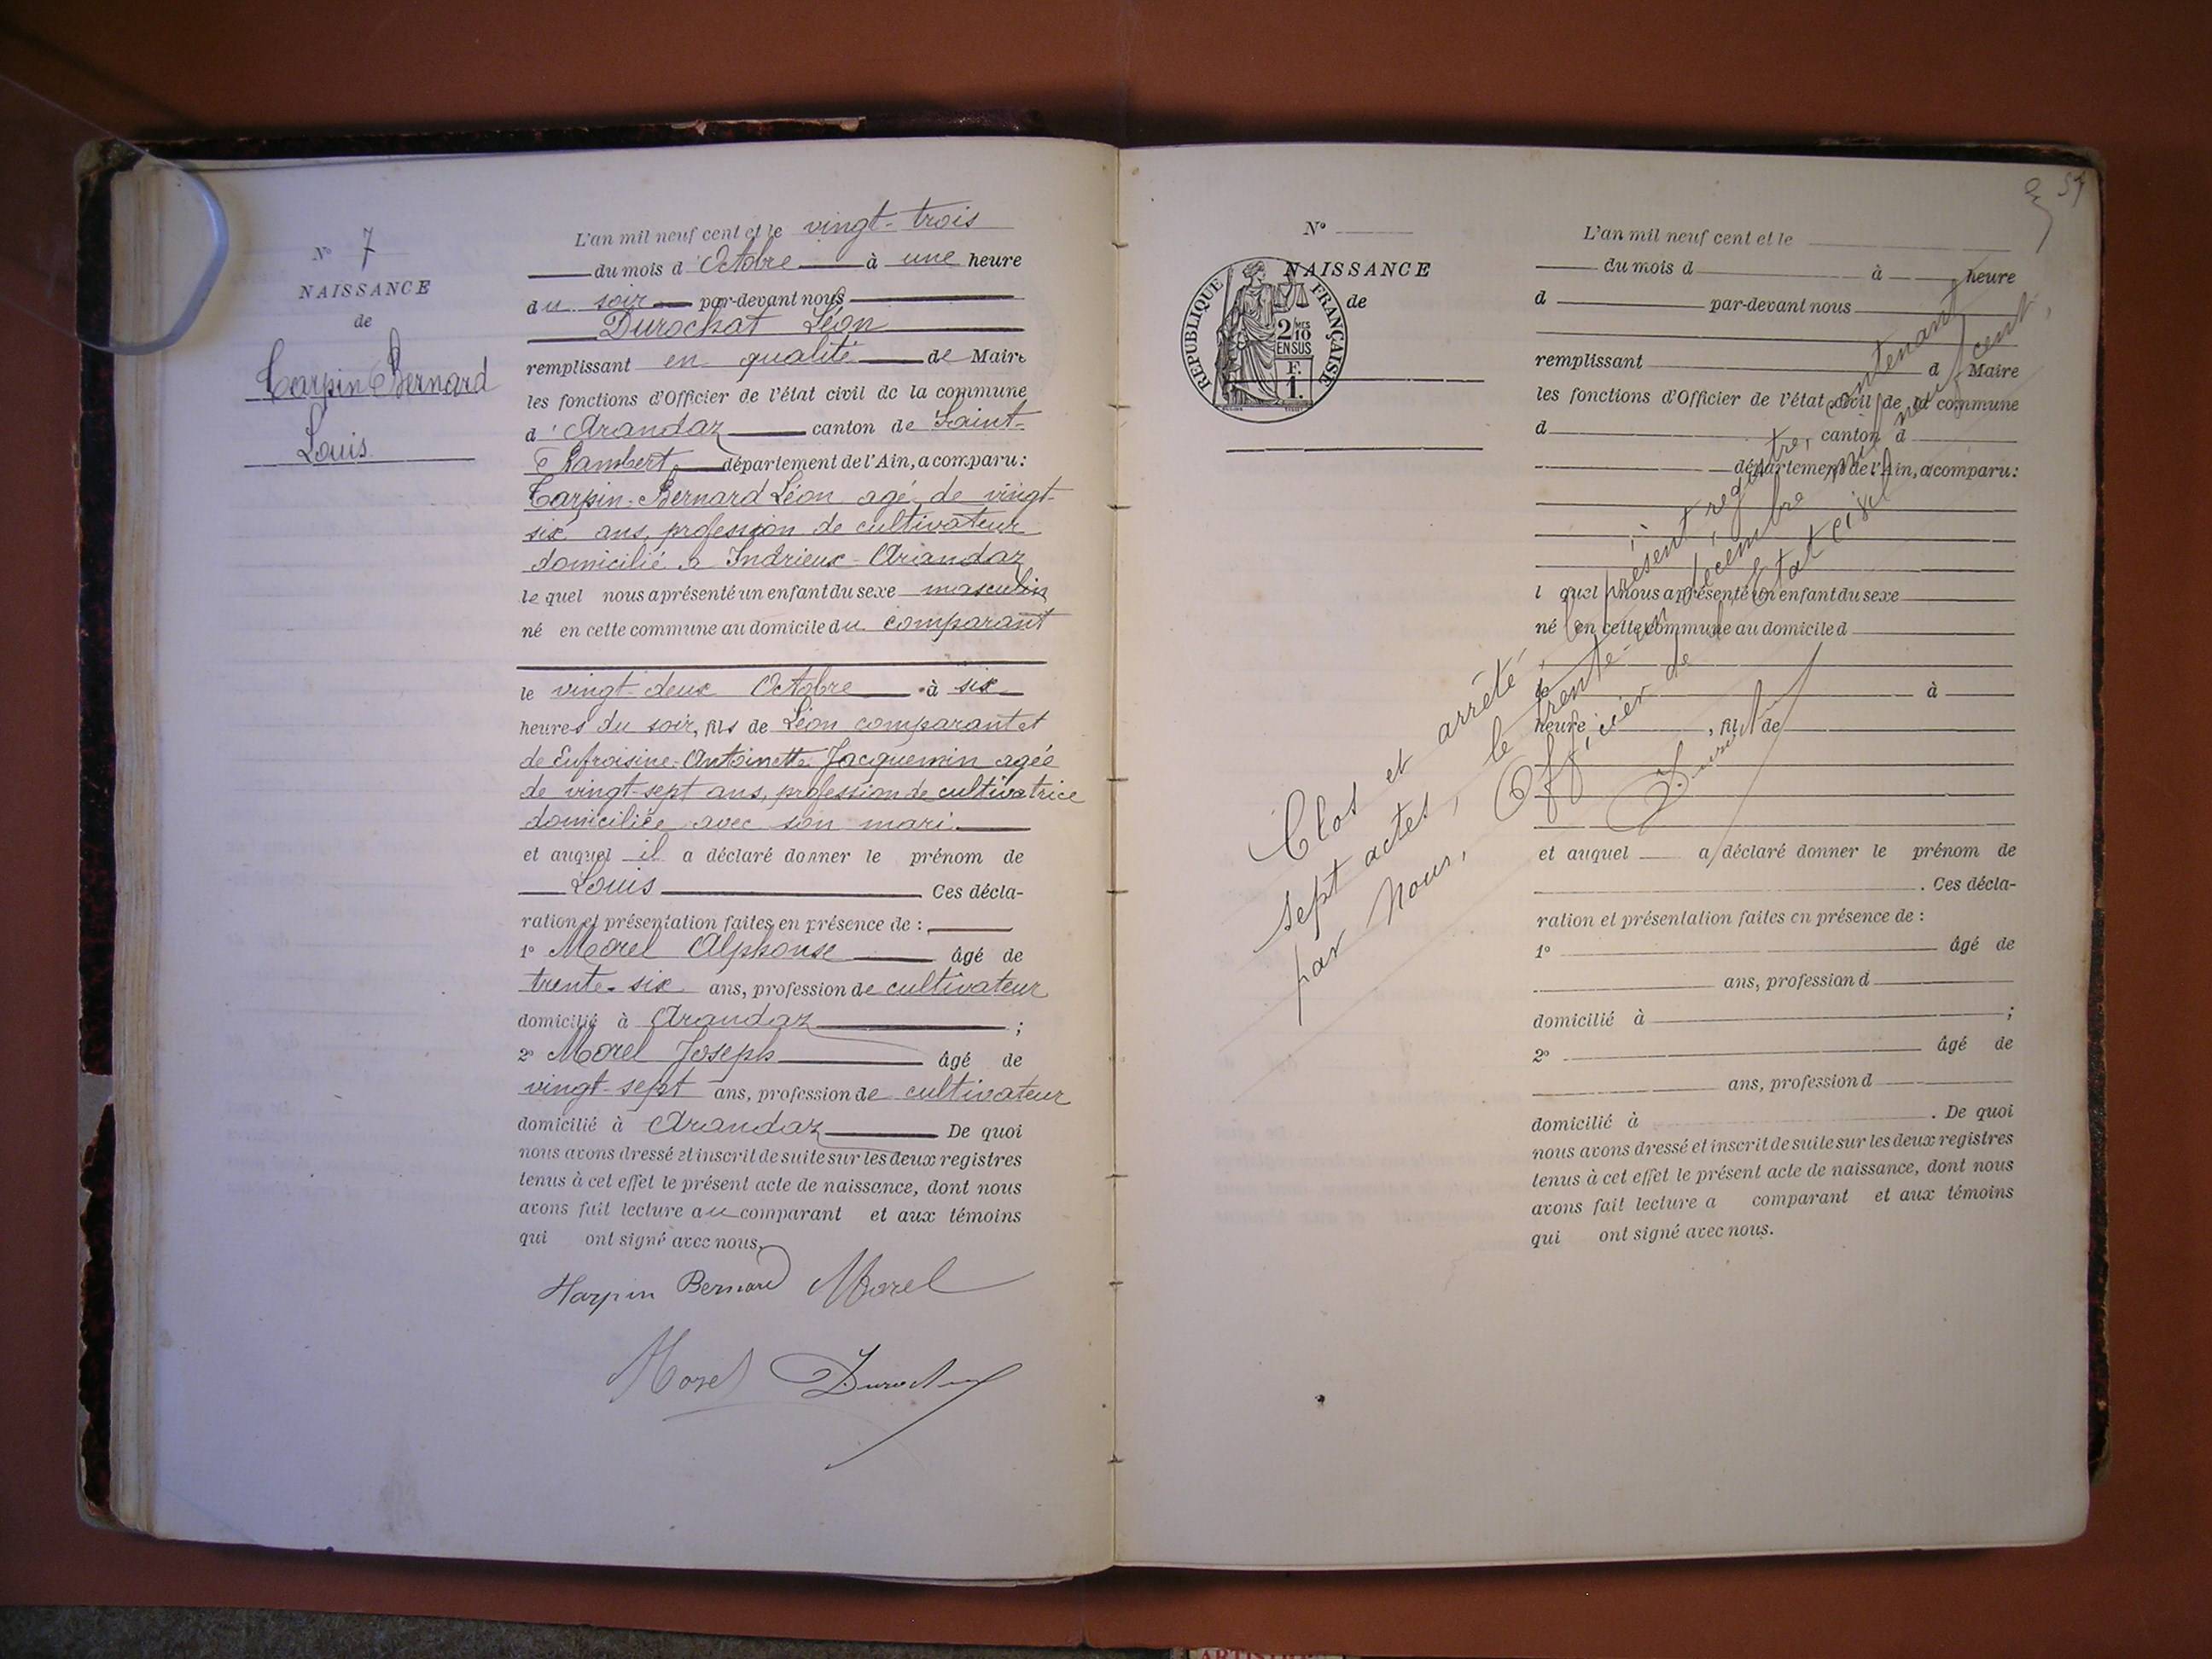 N° 7
NAISSANCE
de
Carpin Bernard
Louis
L'an mil neuf cent et le vingt-trois
du mois d'Octobre à une heure
du soir par-devant nous
Durochat Léon
remplissant en qualité de Maire
les fonctions d'Officier de l'état civil de la commune
d'Arandaz canton de Saint-
Rambert, département de l'Ain, a comparu:
Carpin-Bernard Léon agé de vingt-
six ans, profession de cultivateur
domicilié à Indrieux-Arandaz
lequel nous a présenté un enfant du sexe masculin
né en cette commune au domicile du comparant
le vingt-deux Octobre à six
heures du soir, fils de Léon comparant et
de Eufroisine-Antoinette Jacquemin agée
de vingt-sept ans, profession de cultivatrice
domiciliée avec son mari
et auquel il a déclaré donner le prénom de
Louis Ces décla-
ration et présentation faites en présence de :
1° Morel Alphonse âgé de
trente-six ans, profession de cultivateur
domicilié à Arandaz ;
2° Morel Joseph âgé de
vingt-sept ans, profession de cultivateur
domicilié à Arandaz De quoi
nous avons dressé et inscrit de suite sur les deux registres
tenus à cet effet le présent acte de naissance, dont nous
avons fait lecture au comparant et aux témoins
qui ont signé avec nous.
Harpin Bernard Morel
Morel Durochat
57
N°
NAISSANCE
de
REPUBLIQUE FRANÇAISE
2 MES
10
EN SUS
F.
1.
L'an mil neuf cent et le
du mois d à heure
d par-devant nous
remplissant d Maire
les fonctions d'Officier de l'état civil de la commune
d canton d
département de l'Ain, a comparu:
l quel nous a présenté un enfant du sexe
né en cette commune au domicile d
le à
heure , fil de
et auquel a déclaré donner le prénom de
. Ces décla-
ration et présentation faites en présence de :
1° âgé de
ans, profession d
domicilié à ;
2° âgé de
ans, profession d
domicilié à . De quoi
nous avons dressé et inscrit de suite sur les deux registres
tenus à cet effet le présent acte de naissance, dont nous
avons fait lecture a comparant et aux témoins
qui ont signé avec nous.
Clos et arrêté le présent registre, contenant
sept actes, le trente-un décembre mil neuf cent,
par Nous, Officier de l'Etat civil
Durochat